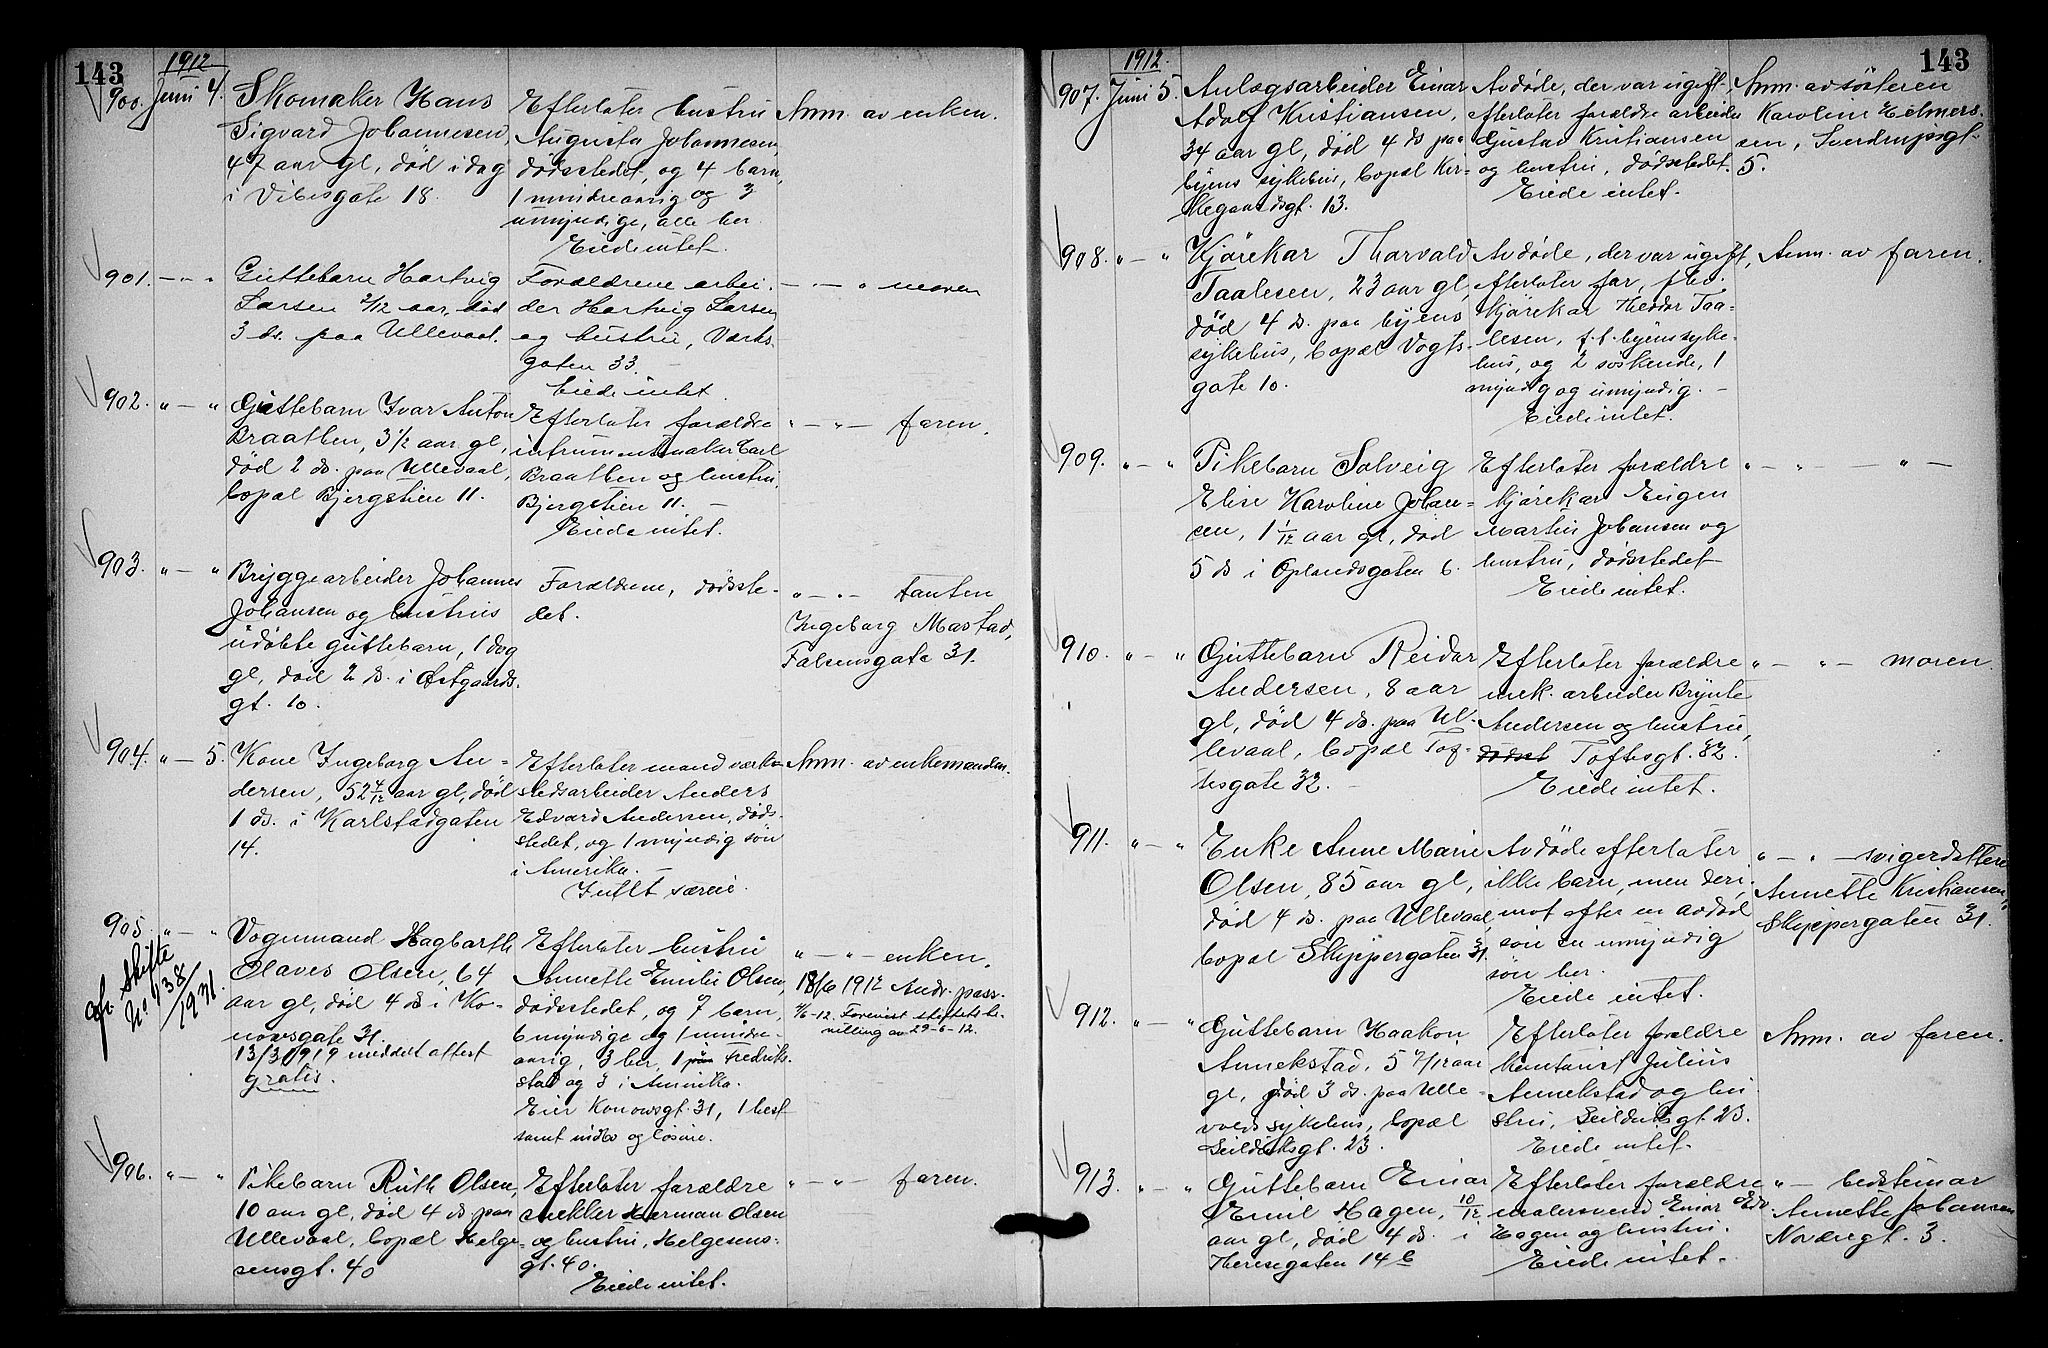 143
1912
900. Juni 4.
Skomaker Hans
Sigvard Johannesen,
47 aar gl, död i dag
i Vibesgate 18.
Efterlater hustru
Augusta Johannesen,
dödsstedet, og 4 barn,
1 mindreaarig og 3
umyndige, alle her.
Eiede intet.
Anm. av enken.
901. — " "
Guttebarn Hartvig
Larsen 2/12 aar, död
3 ds. paa Ullevaal.
Forældrene arbei-
der Hartvig Larsen
og hustru, Verks-
gaten 33.
Eiede intet.
— " — " moren
902. " — "
Guttebarn Ivar Anton
Braathen, 3 1/2 aar gl,
död 2 ds. paa Ullevaal,
bopæl Bjergstien 11.
Efterlater forældre
intrumentmaker Carl
Braathen og hustru,
Bjergstien 11. —
Eiede intet.
" — " — faren.
903. " — "
Bryggearbeider Johannes
Johansen og hustrus
udöbte guttebarn, 1 dag
gl, död 2 ds. i Östgaards-
gt. 10.
Forældrene, dödsste-
det.
" — " — tanten
Ingeborg Mastad,
Falsensgate 31.
904. " — 5.
Kone Ingeborg An-
dersen, 52 4/12 aar gl, död
1 ds. i Karlstadgaten
14.
Efterlater mand verk-
stedsarbeider Anders
Edvard Andersen, döds-
stedet, og 1 myndig sön
i Amerika. —
Intet særeie.
Anm. av enkemanden.
905. " — "
cfr. Skifte
No 438/1931.
Vognmand Hagbarth
Olaves Olsen, 64
aar gl, död 4 ds i Ko-
nowsgate 31.
13/3 1919 meddelt attest
gratis.
Efterlater hustru
Annette Emilie Olsen,
dödsstedet, og 7 barn,
6 myndige og 1 mindre-
aarig, 3 her, 1 paa Fredrik-
stad og 3 i Amerika.
Eier Konowsgt. 31, 1 hest
samt indbo og lösöre.
" — " — enken.
18/6 1912 Andr. pass.
4/6-12. Forevist skiftets be-
villing av 29-6-12.
906. " — "
Pikebarn Ruth Olsen,
10 aar gl, död 4 ds paa
Ullevaal, bopæl Helge-
sensgt. 40
Efterlater forældre
snekker Herman Olsen
og hustru, Helgesens-
gt. 40.
Eiede intet.
" — " — faren.
143
1912.
907. Juni 5.
Anlægsarbeider Einar
Adolf Kristiansen,
34 aar gl, död 4 ds paa
byens sykehus, bopæl Kir-
kegaardsgt. 13.
Avdöde, der var ugift,
efterlater forældre arbeider
Gustav Kristiansen
og hustru, dödsstedet.
Eiede intet.
Anm. av sösteren
Karoline Eelmers-
sen, Sverdrupsgt.
5.
908. " — "
Kjörekar Thorvald
Taalesen, 23 aar gl,
död 4 ds. paa byens
sykehus, bopæl Vogts-
gate 10.
Avdöde, der var ugift,
efterlater far, fhv.
kjörekar Theodor Taa-
lesen, f.t. byens syke-
hus, og 2 söskende, 1
myndig og umyndig. —
Eiede intet.
Anm. av faren.
909. " — "
Pikebarn Solveig
Elise Karoline Johan-
sen, 1 1/12 aar gl, död
5 ds i Oplandsgaten 6.
Efterlater forældre
kjörekar Eugen
Martin Johansen og
hustru, dödsstedet
Eiede intet.
" — " — " —
910. " — "
Guttebarn Reidar
Andersen, 8 aar
gl, död 4 ds. paa Ul-
levaal, bopæl Tof-
tesgate 32. —
Efterlater forældre
mek. arbeider Brynte
Andersen og hustru,
dödsst Toftesgt. 32.
Eiede intet.
" — " — moren.
911. " — "
Enke Anne Marie
Olsen, 85 aar gl,
död 4 ds. paa Ullevaal,
bopæl Skippergaten 31.
Avdöde efterlater
ikke barn, men deri-
mot efter en avdöd
sön en umyndig
sön her.
Eiede intet.
" — " — svigerdatteren
Annette Kristiansen,
Skippergaten 31.
912. " — "
Guttebarn Haakon
Annekstad, 5 7/12 aar
gl, död 3 ds. paa Ulle-
vaals sykehus, bopæl
Seilduksgt. 23.
Efterlater forældre
kontorist Julius
Annekstad og hu-
stru, Seilduksgt 23.
Eiede intet.
Anm. av faren.
913. " — "
Guttebarn Einar
Emil Hagen, 10/12
aar gl, död 4 ds. i
Theresegaten 14 b
Efterlater forældre
malersvend Einar Edv.
Hagen og hustru.
Eiede intet. —
" — bedstemor
Annette Johansen
Nordregt. 3.